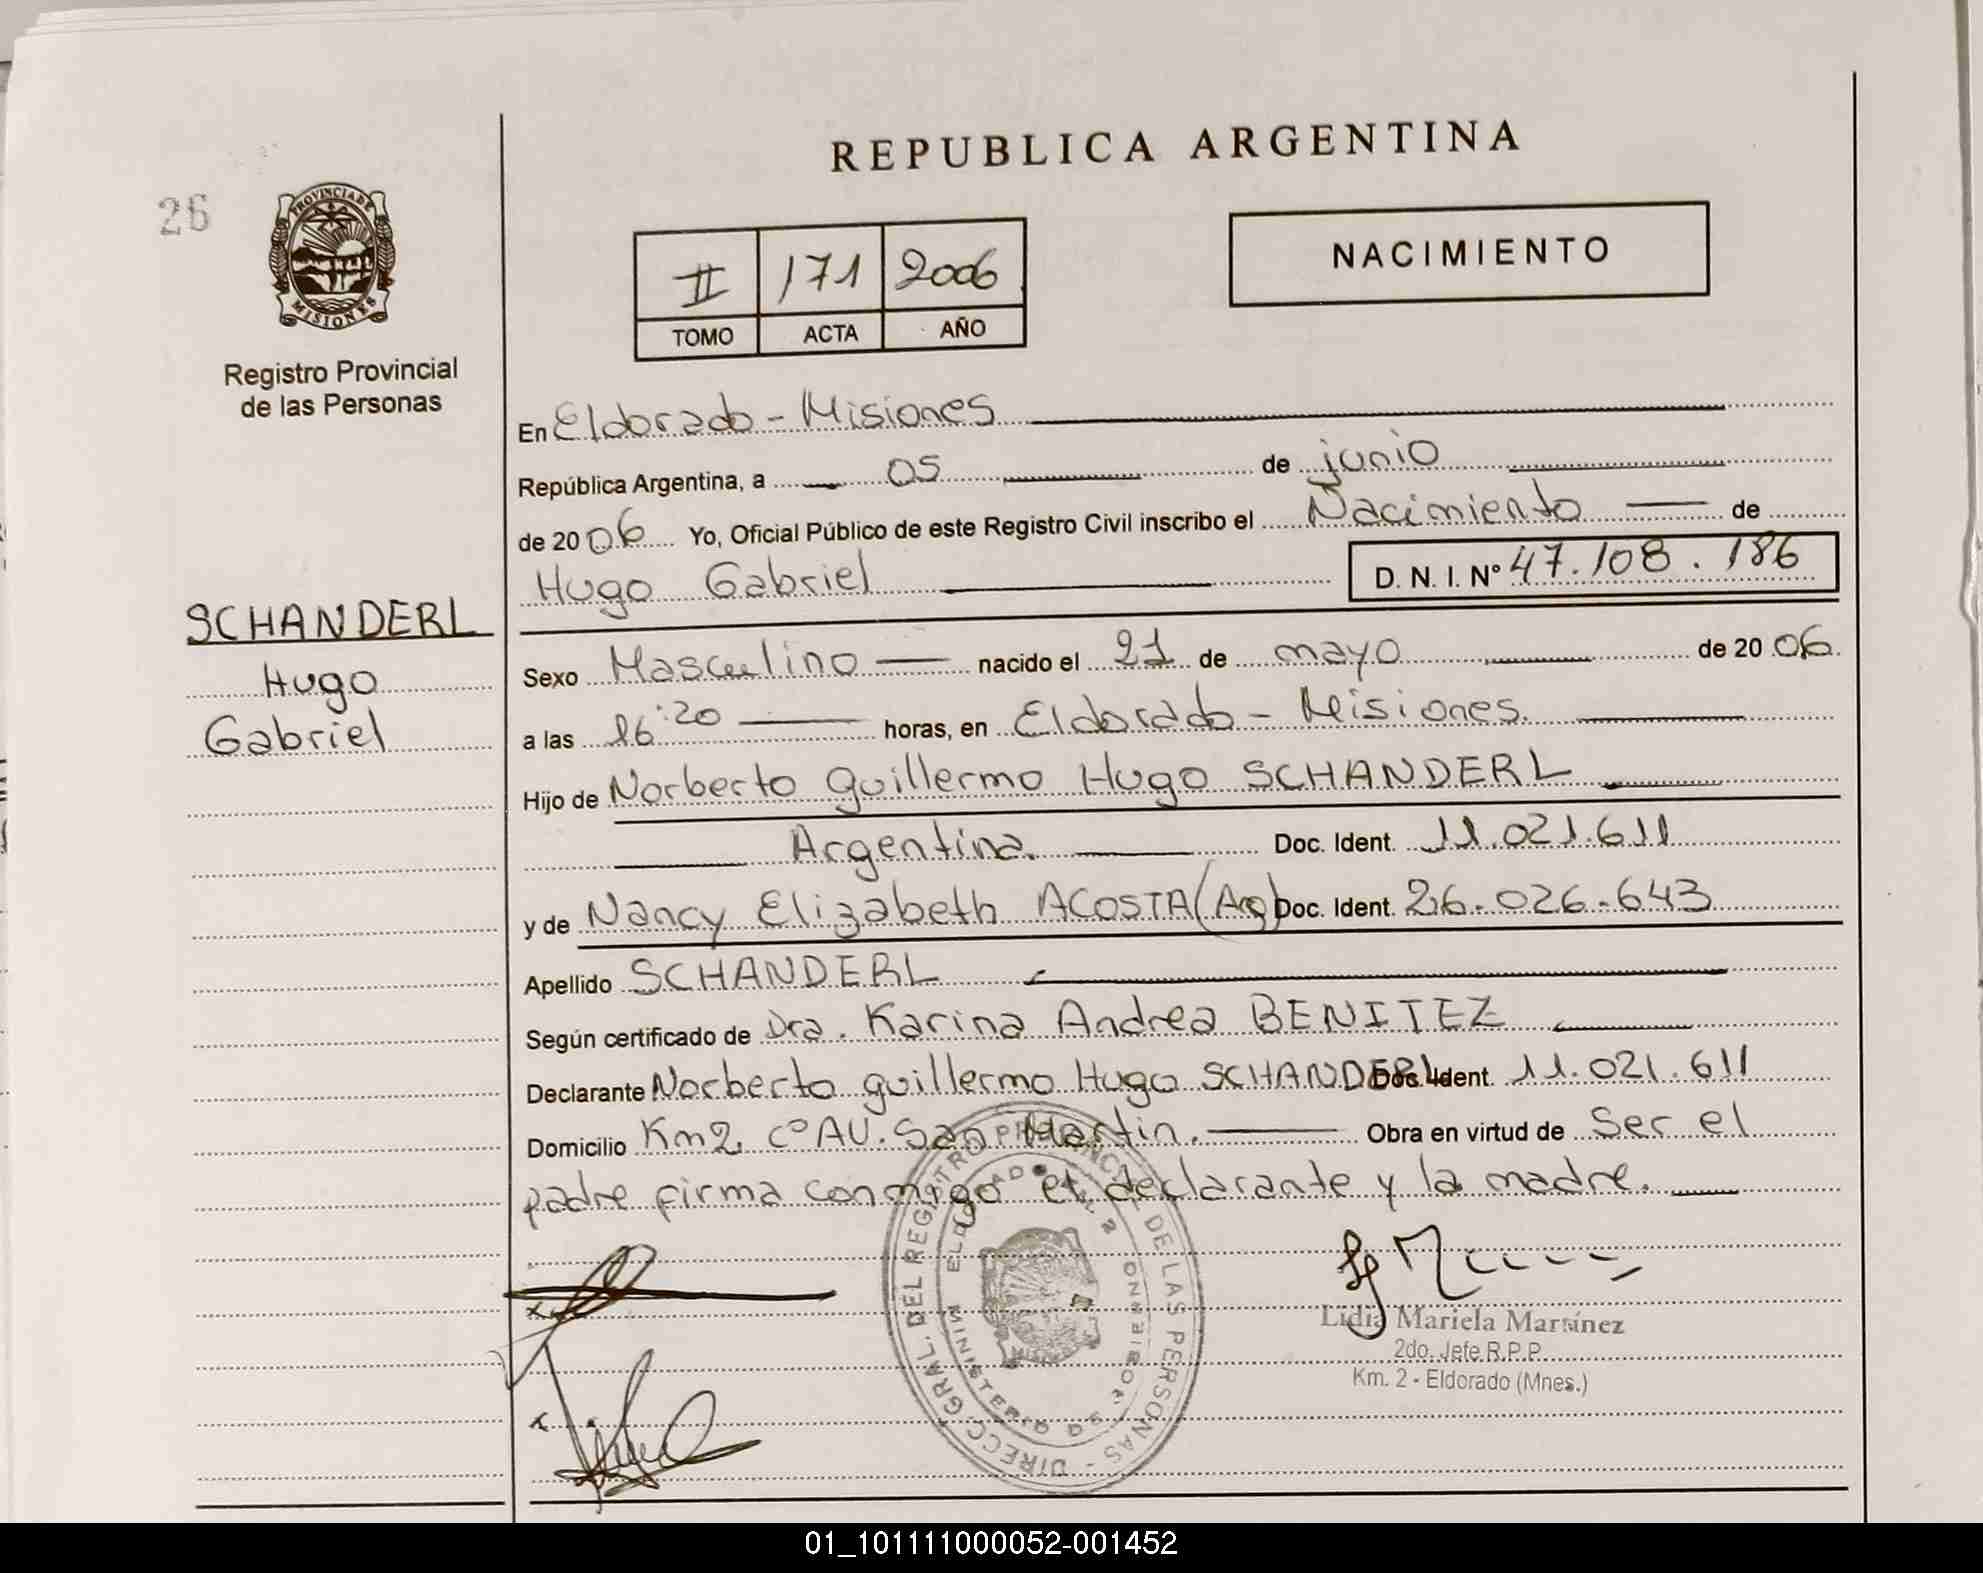 REPUBLICA ARGENTINA
26
PROVINCIA DE MISIONES
Registro Provincial
de las Personas
II 171 2006
TOMO ACTA AÑO
NACIMIENTO
En Eldorado - Misiones
República Argentina, a 05 de junio
de 2006 Yo, Oficial Público de este Registro Civil inscribo el Nacimiento de
Hugo Gabriel D. N. I. Nº 47.108.186
SCHANDERL
Hugo
Gabriel
Sexo Masculino nacido el 21 de mayo de 2006
a las 16:20 horas, en Eldorado - Misiones.
Hijo de Norberto guillermo Hugo SCHANDERL
Argentina. Doc. Ident. 11.021.611
y de Nancy Elizabeth ACOSTA (Arg) Doc. Ident. 26.026.643
Apellido SCHANDERL
Según certificado de Dra. Karina Andrea BENITEZ
Declarante Norberto guillermo Hugo SCHANDERL Doc. Ident. 11.021.611
Domicilio Km2 cº AV. San Martin. Obra en virtud de Ser el
padre firma conmigo el declarante y la madre.
DIRECC. GRAL. DEL REGISTRO PROVINCIAL DE LAS PERSONAS
MINISTERIO DE GOBIERNO
ELDORADO KM. 2
Lidia Mariela Martínez
2do. Jefe R.P.P.
Km. 2 - Eldorado (Mnes.)
01_101111000052-001452